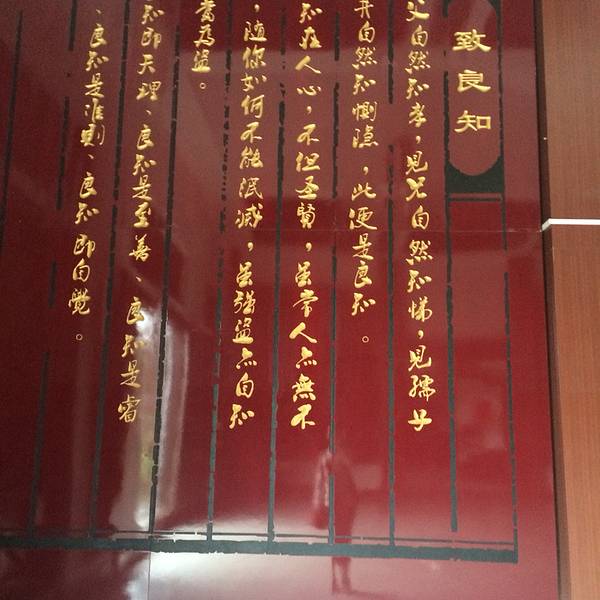 致良知
父自然知孝，見兄自然知悌，見孺子
井自然知惻隱，此便是良知。
知在人心，不但圣賢，虽常人亦無不
，随你如何不能泯滅，虽强盗亦自知
當為盗。
知即天理、良知是至善、良知是睿
、良知是准則、良知即自覺。